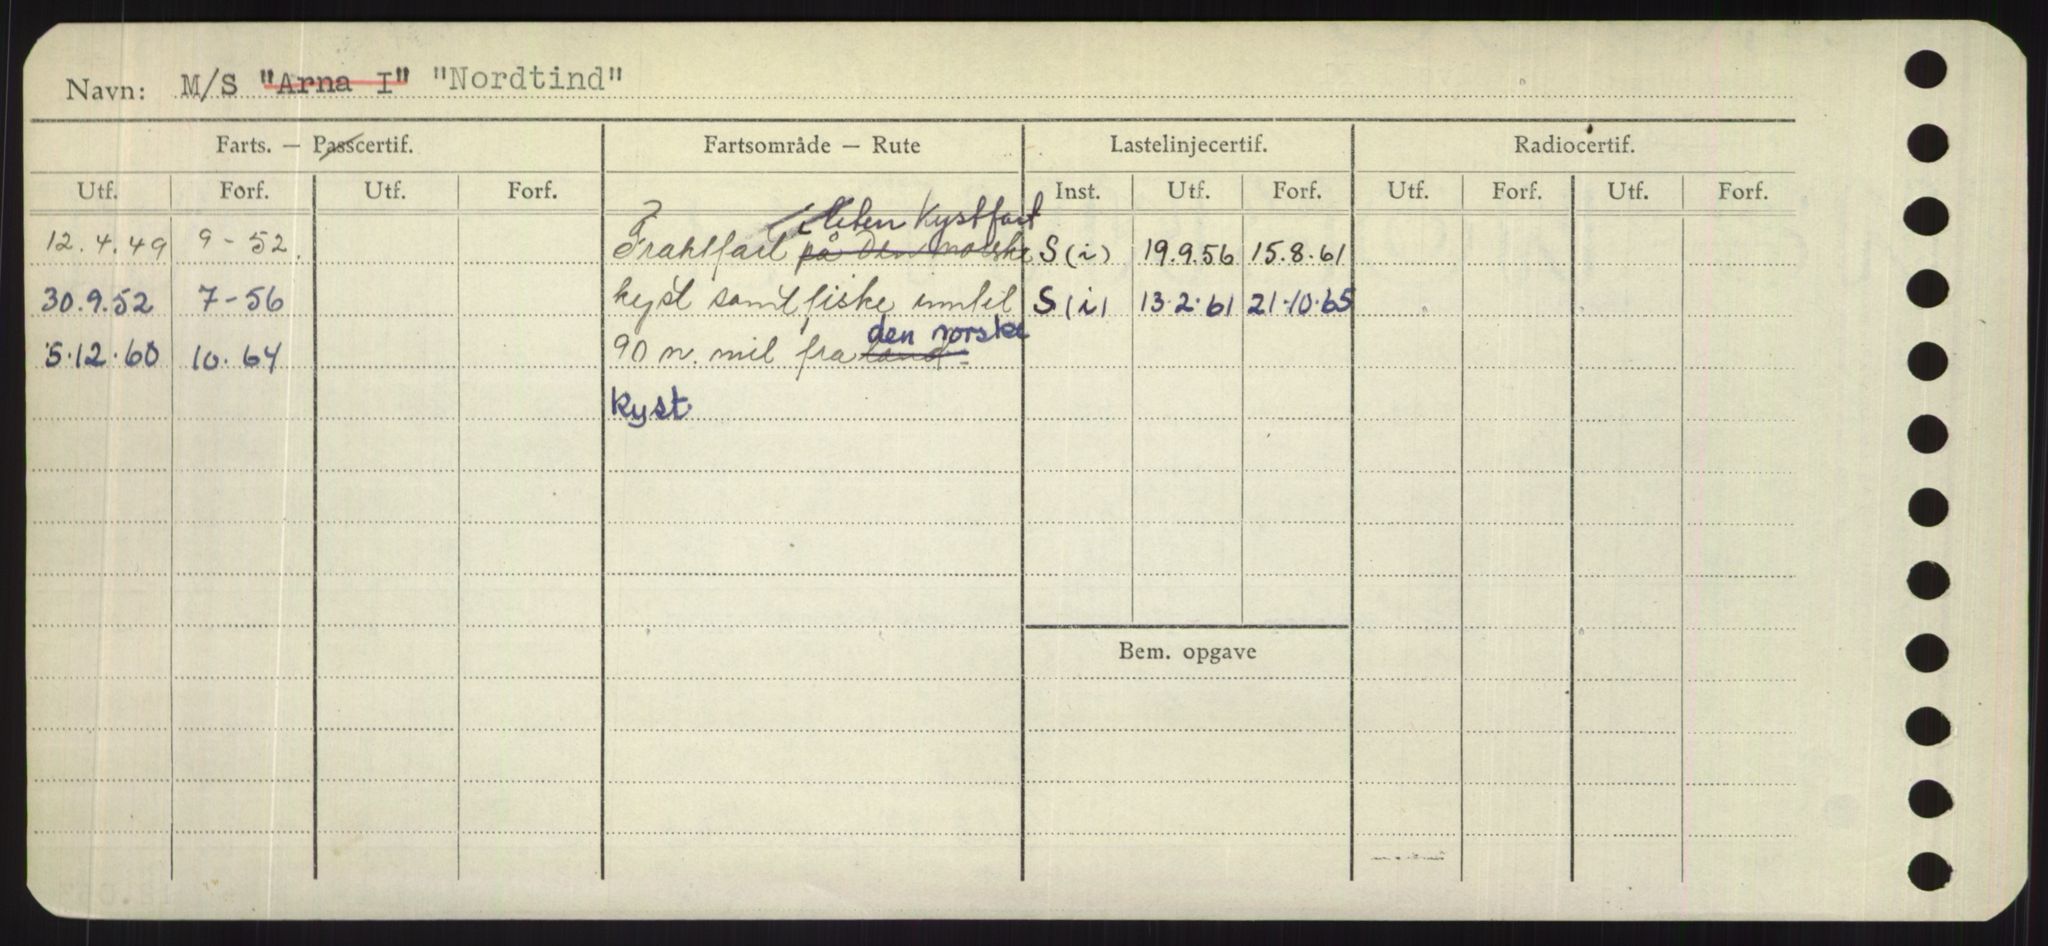 Navn: M/S "Arna I" "Nordtind"
Farts. — Passcertif. Fartsområde — Rute Lastelinjecertif. Radiocertif.
Utf. Forf. Utf. Forf. Inst. Utf. Forf. Utf. Forf. Utf. Forf.
liten Kystfart
12.4.49 9-52. Fraktfart på den norske S(i) 19.9.56 15.8.61
30.9.52 7-56 kyst samt fiske inntil S(i) 13.2.61 21.10.65
den norske
5.12.60 10.64 90 n. mil fra land
kyst.
Bem. opgave